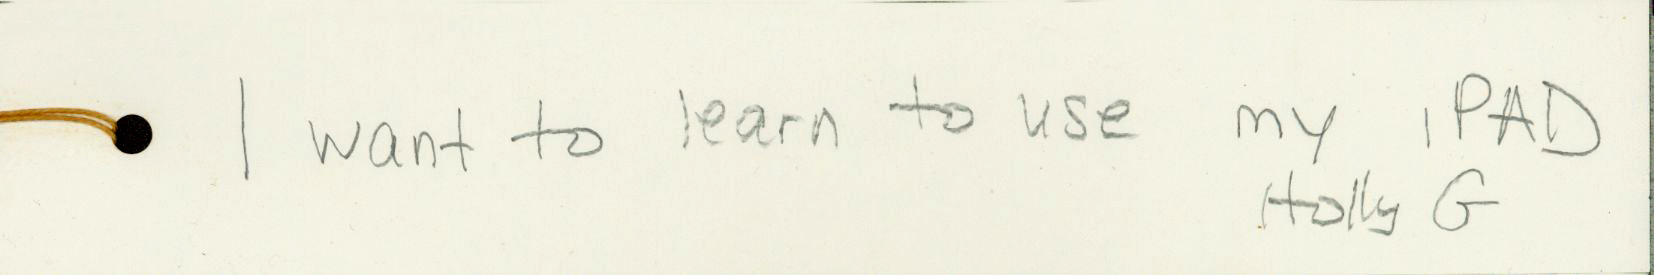 I want to learn to use my iPAD
Holly G